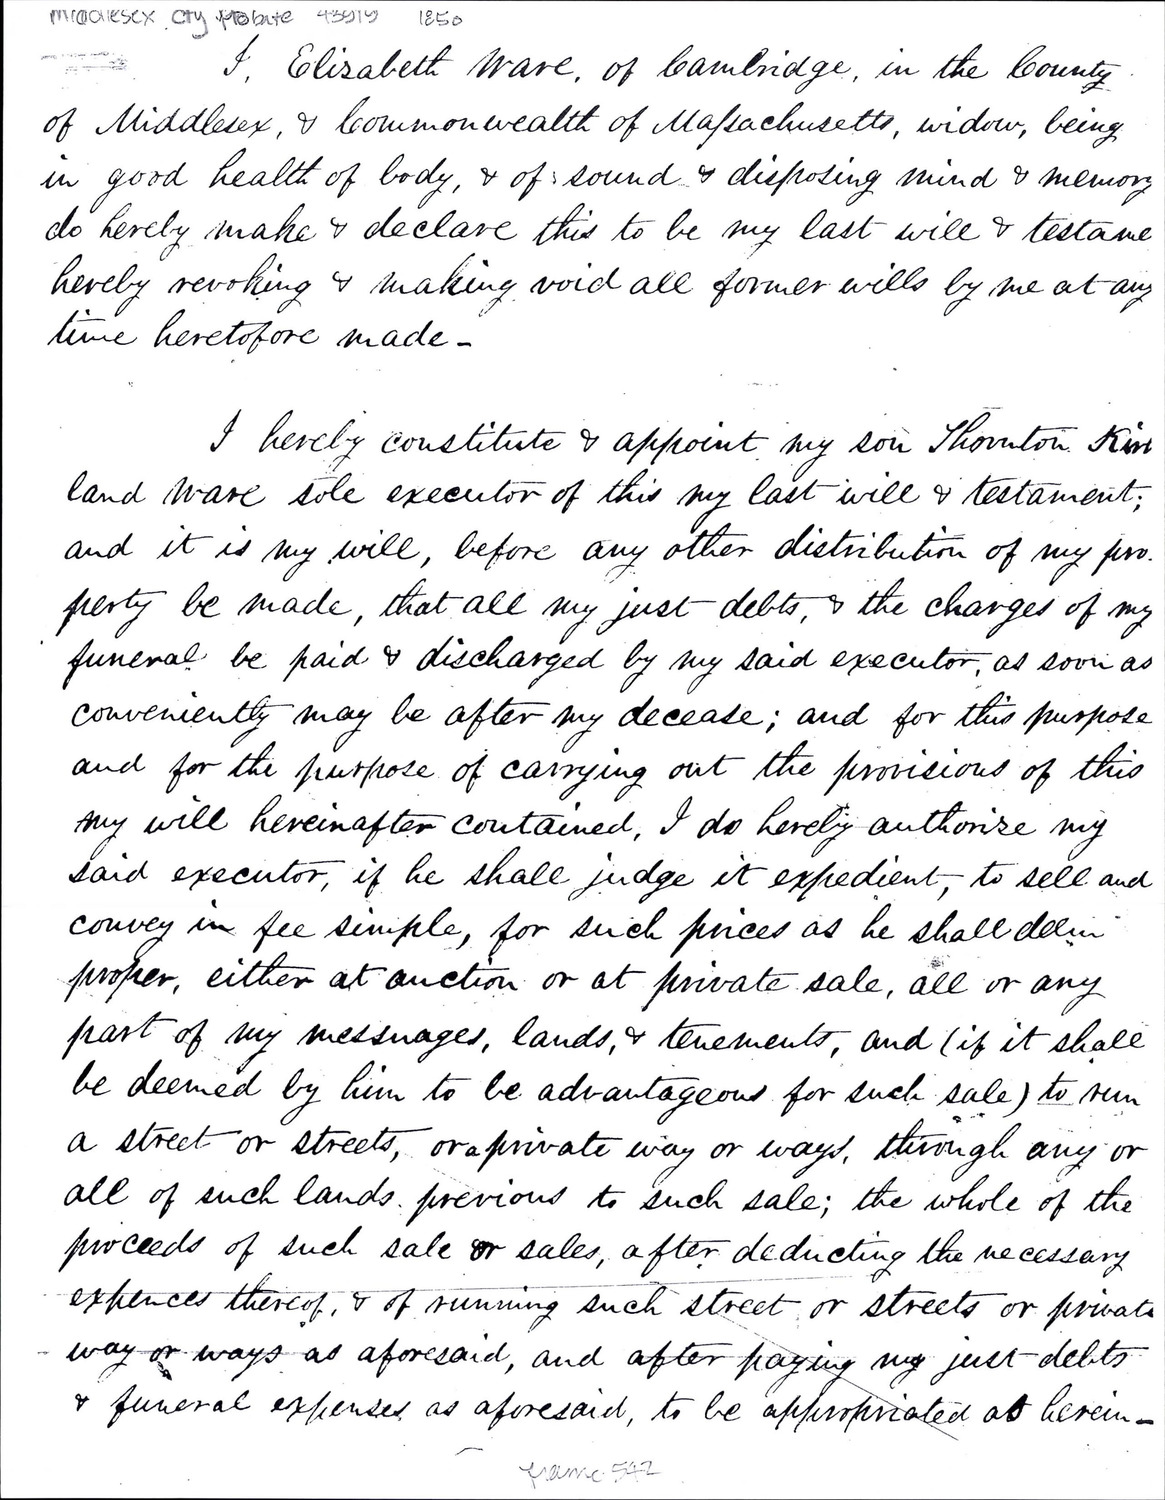 Middlesex Cty Probate 43919 1850
I, Elizabeth Ware, of Cambridge, in the County
of Middlesex, & Commonwealth of Massachusetts, widow, being
in good health of body, & of sound & disposing mind & memory
do hereby make & declare this to be my last will & testame
hereby revoking & making void all former wills by me at any
time heretofore made -
I hereby constitute & appoint my son Thornton Kirk
land Ware sole executor of this my last will & testament;
and it is my will, before any other distribution of my pro-
perty be made, that all my just debts, & the charges of my
funeral be paid & discharged by my said executor, as soon as
conveniently may be after my decease; and for this purpose
and for the purpose of carrying out the provisions of this
my will hereinafter contained, I do hereby authorize my
said executor, if he shall judge it expedient, to sell and
convey in fee simple, for such prices as he shall deem
proper, either at auction or at private sale, all or any
part of my messuages, lands, & tenements, and (if it shall
be deemed by him to be advantageous for such sale) to run
a street or streets, or a private way or ways, through any or
all of such lands previous to such sale; the whole of the
proceeds of such sale or sales, after deducting the necessary
expences thereof, & of running such street or streets or private
way or ways as aforesaid, and after paying my just debts
& funeral expenses as aforesaid, to be appropriated as herein-
frame 542